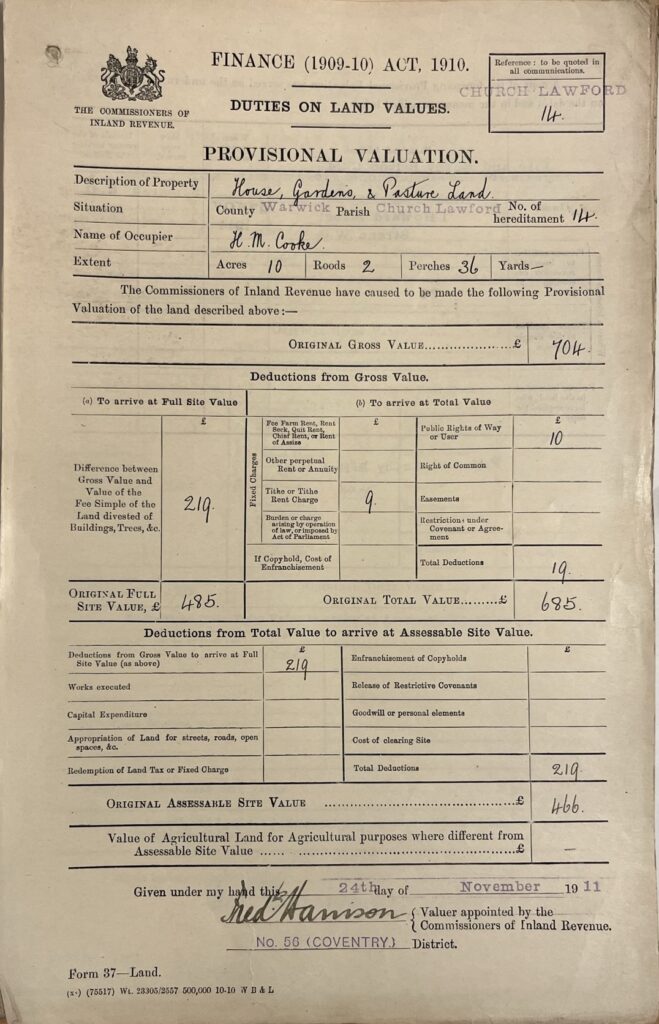 FINANCE (1909-10) ACT, 1910.
THE COMMISSIONERS OF
INLAND REVENUE.
DUTIES ON LAND VALUES.
Reference: to be quoted in
all communications.
CHURCH LAWFORD
14.
PROVISIONAL VALUATION.
Description of Property House, Gardens, & Pasture Land.
Situation County Warwick Parish Church Lawford No. of hereditament 14.
Name of Occupier H. M. Cooke.
Extent Acres 10 Roods 2 Perches 36 Yards —
The Commissioners of Inland Revenue have caused to be made the following Provisional
Valuation of the land described above:—
ORIGINAL GROSS VALUE..................£ 704.
Deductions from Gross Value.
(a) To arrive at Full Site Value
(b) To arrive at Total Value
£
Difference between
Gross Value and
Value of the
Fee Simple of the
Land divested of
Buildings, Trees, &c.
219.
Fixed Charges
£
Fee Farm Rent, Rent
Seck, Quit Rent,
Chief Rent, or Rent
of Assize
Other perpetual
Rent or Annuity
Tithe or Tithe
Rent Charge
9.
Burden or charge
arising by operation
of law, or imposed by
Act of Parliament
If Copyhold, Cost of
Enfranchisement
£
Public Rights of Way
or User
10
Right of Common
Easements
Restrictions under
Covenant or Agree-
ment
Total Deductions
19.
ORIGINAL FULL
SITE VALUE, £ 485.
ORIGINAL TOTAL VALUE.........£ 685.
Deductions from Total Value to arrive at Assessable Site Value.
£
Deductions from Gross Value to arrive at Full
Site Value (as above)
219
Works executed
Capital Expenditure
Appropriation of Land for streets, roads, open
spaces, &c.
Redemption of Land Tax or Fixed Charge
£
Enfranchisement of Copyholds
Release of Restrictive Covenants
Goodwill or personal elements
Cost of clearing Site
Total Deductions
219.
ORIGINAL ASSESSABLE SITE VALUE ..................£ 466.
Value of Agricultural Land for Agricultural purposes where different from
Assessable Site Value ..................£ —
Given under my hand this 24th day of November 1911
Fredk Harrison
Valuer appointed by the
Commissioners of Inland Revenue.
No. 56 (COVENTRY.) District.
Form 37—Land.
(75517) Wt. 23305/2557 500,000 10-10 W B & L